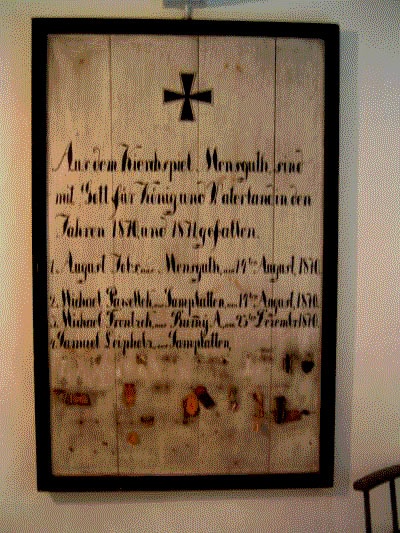 Aus dem Kierchspiel Mensguth sind
mit Gott für König und Vaterland in den
Jahren 1870 und 1871 gefallen.
1. August Mensguth, 14ten August, 1870.
2. Michael aus Samplatten, 14ten August, 1870.
3. Michael A, 25ten Dezember 1870.
4. Samuel aus Samplatten,